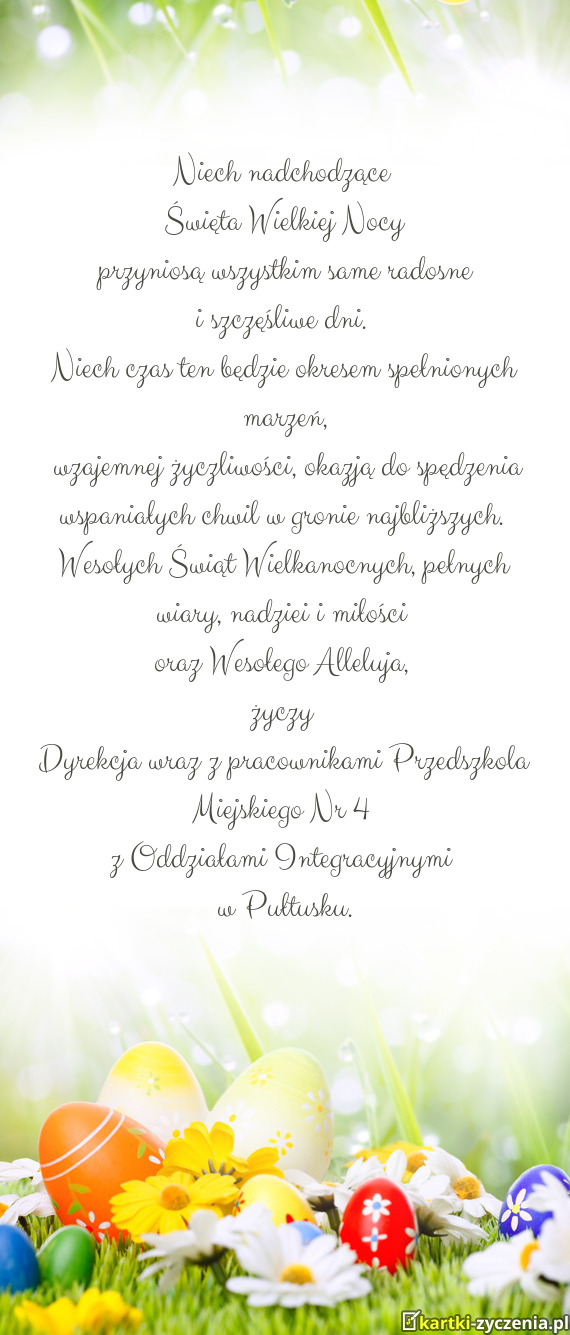 Niech nadchodzące
Święta Wielkiej Nocy
przyniosą wszystkim same radosne
i szczęśliwe dni.
Niech czas ten będzie okresem spełnionych
marzeń,
wzajemnej życzliwości, okazją do spędzenia
wspaniałych chwil w gronie najbliższych.
Wesołych Świąt Wielkanocnych, pełnych
wiary, nadziei i miłości
oraz Wesołego Alleluja,
życzy
Dyrekcja wraz z pracownikami Przedszkola
Miejskiego Nr 4
z Oddziałami Integracyjnymi
w Pułtusku.
kartki-zyczenia.pl